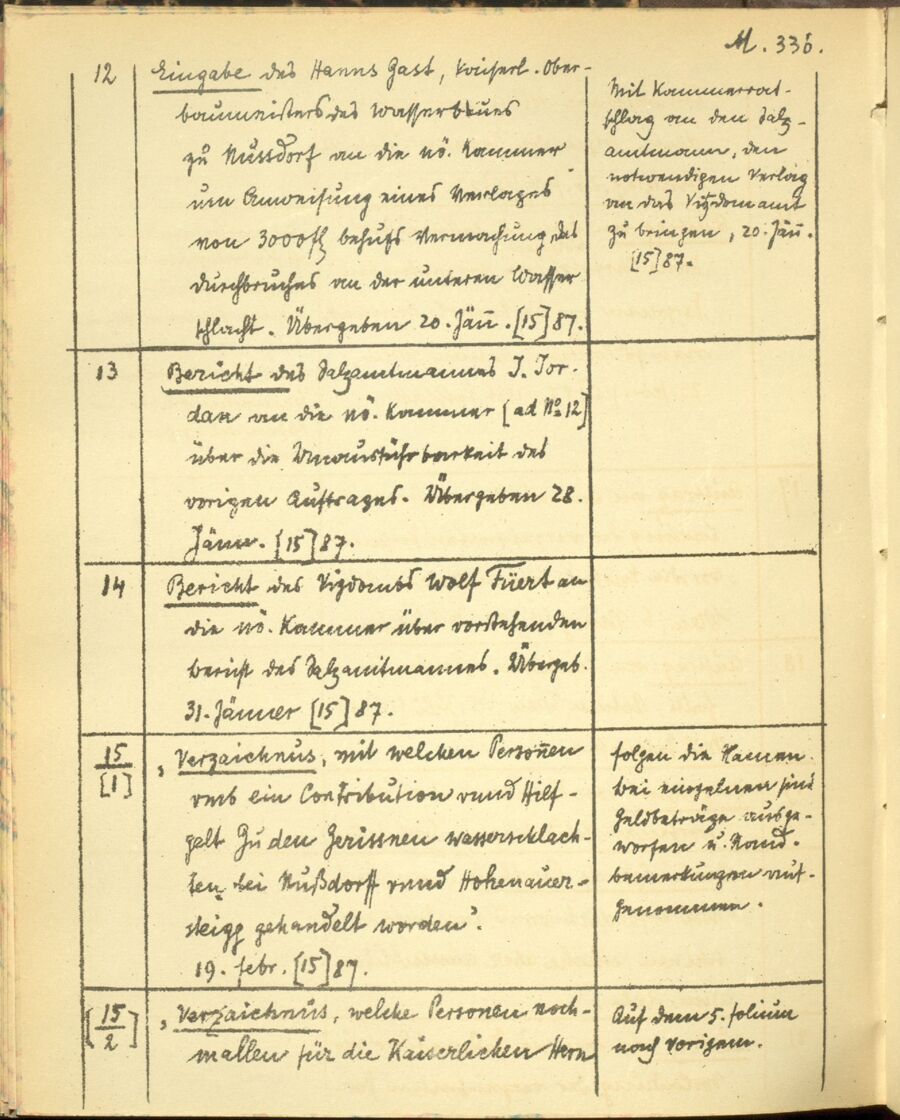 M. 336.
12 Eingabe des Hanns Gast, Kaiserl. Ober-
baumeisters des Wasserbaues
zu Nussdorf an die nö. Kammer
um Anweisung eines Verlages
von 3000 fl behufs Vermachung des
Durchbruches an der unteren Wasser
schlacht. Übergeben 20. Jän̄. [15]87.
Mit Kammerrat-
schlag an den Salz-
amtmann, den
notwendigen Verlag
an das Vizdomamt
zu bringen, 20. Jän̄.
[15]87.
13 Bericht des Salzamtmannes J. Jor-
dan an die nö. Kammer [ad No 12]
über die Unausführbarkeit des
vorigen Auftrages. Übergeben 28.
Jänn. [15]87.
14 Bericht des Vizdombs Wolf Füert an
die nö. Kammer über vorstehenden
Bericht des Salzamtmannes. Übergeb.
31. Jänner [15]87.
15
[1]
„Verzaichnus, mit welchen Perso͞nen
vmb ein Contribution vnnd Hilf-
gelt Zu den Zerissnen wasserschlach-
ten bei Nußdorff vnnd Hohenauer-
steigg gehandelt worden“.
19. febr. [15]87.
folgen die Namen.
Bei einzelnen sind
Geldbeträge ausge-
worfen u. Rand-
bemerkungen auf-
genommen.
[15
2]
„Verzaichnus, welche Personen noch-
mallen für die Kaiserlichen Hern
Auf dem 5. folium
nach vorigem.